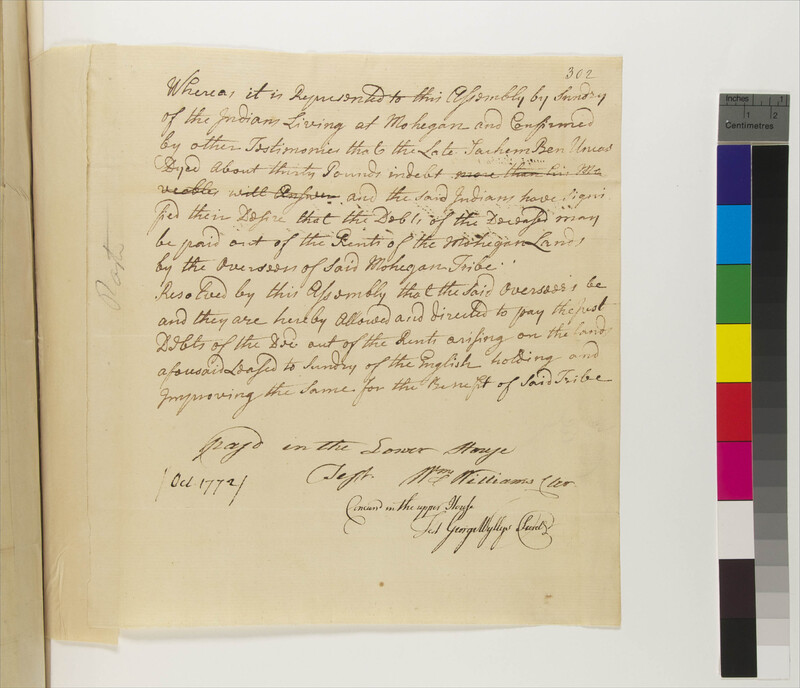 302
Whereas it is Represented to this Assembly by Sundry
of the Indians Living at Mohegan and Confirmed
by other Testimonies that the Late Sachem Ben Uncas
Dyed About thirty Pounds indebt more than his Mo
veables will Answer and the said Indians have Signi
fied their Desire that the Debts of the Deceased may
be paid out of the Rents of the Mohegan Lands
by the Overseers of Said Mohegan Tribe
Resolved by this Assembly that the Said Overseers be
and they are hereby Allowed and directed to pay the just
Debts of the Decd out of the Rents arising on the lands
aforesaid Leased to Sundry of the English holding and
Improving the Same for the Benefit of Said Tribe
Pass'd in the Lower House
Test Wm Williams Cler
[Oct 1772]
Concurrd in the upper House
Test George Wyllys Secret
Inches 1
1 2
Centimetres